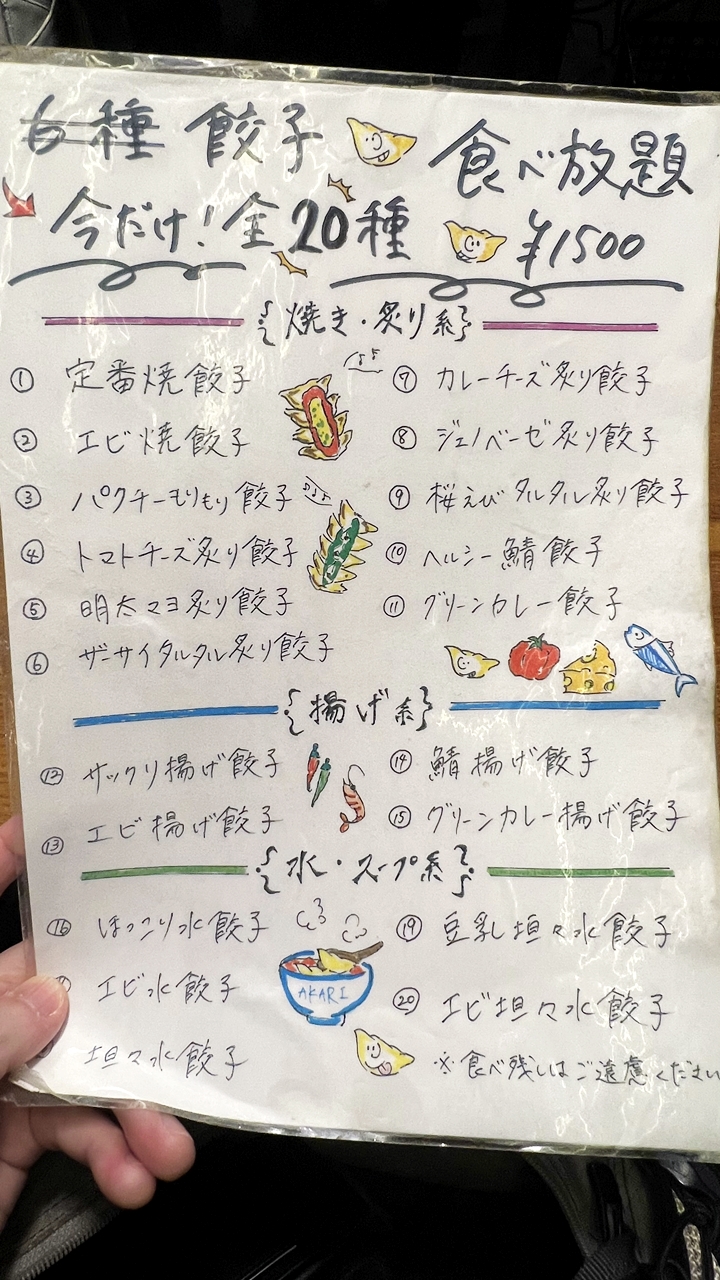 6種 餃子 食べ放題
今だけ！全20種 ¥1500
焼き・炙り系
① 定番焼餃子
② エビ焼餃子
③ パクチーもりもり餃子
④ トマトチーズ炙り餃子
⑤ 明太マヨ炙り餃子
⑥ ザーサイタルタル炙り餃子
⑦ カレーチーズ炙り餃子
⑧ ジェノベーゼ炙り餃子
⑨ 桜えびタルタル炙り餃子
⑩ ヘルシー鯖餃子
⑪ グリーンカレー餃子
揚げ系
⑫ サックリ揚げ餃子
⑬ エビ揚げ餃子
⑭ 鯖揚げ餃子
⑮ グリーンカレー揚げ餃子
水・スープ系
⑯ ほっこり水餃子
エビ水餃子
坦々水餃子
⑲ 豆乳坦々水餃子
⑳ エビ坦々水餃子
AKARI
※食べ残しはご遠慮ください